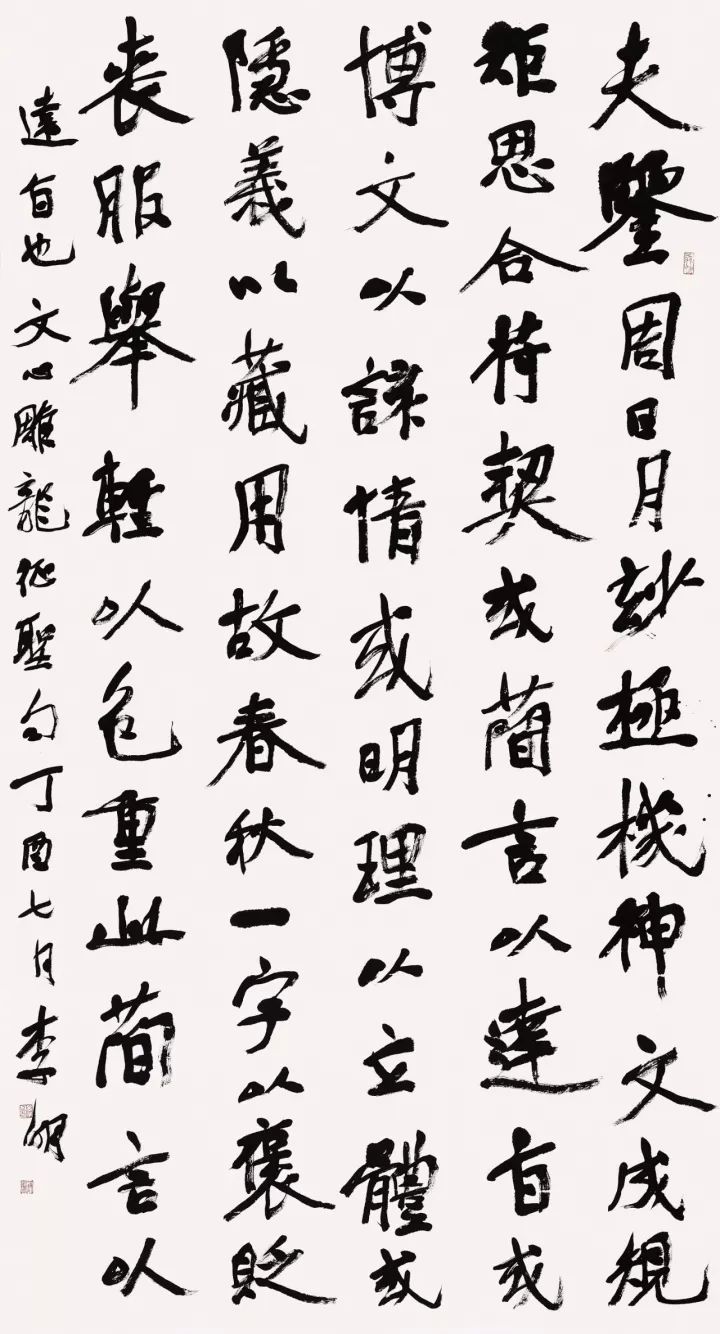 夫鑒周日月妙極機神文成規
矩思合符契或簡言以達旨或
博文以該情或明理以立體或
隱義以藏用故春秋一字以褒貶
喪服舉輕以包重此簡言以
達旨也文心雕龍征聖句丁酉七月李明